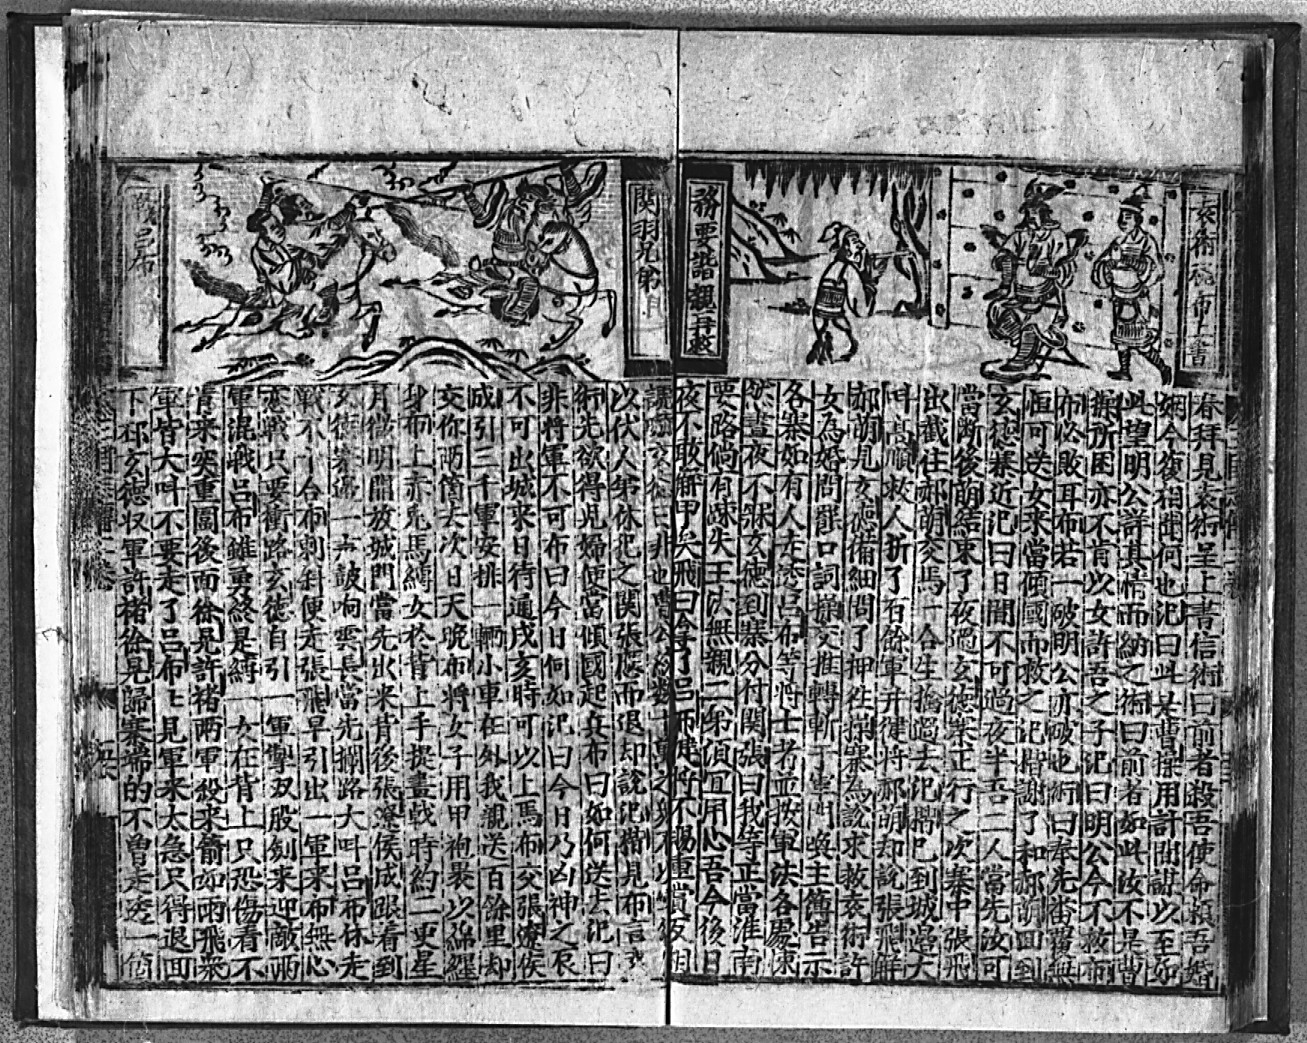 袁術　布上書
務要諧親
春拜見袁術呈上書信術曰前者殺吾使命賴吾婚
姻今復相聞何也汜曰此是曹操用計間諜以至如
此望明公詳其情而納之術曰前者如此汝不是曹
操所困亦不肯以女許吾之子汜曰明公今不救布
布必敗耳布若一破明公亦破也術曰奉先番覆無
恒可送女來當傾國而救之汜楷謝了和郝萌回到
玄德寨近汜曰日間不可過夜半吾二人當先汝可
當斷後萌結束了夜過玄德寨正行之次寨中張飛
出截住郝萌交馬一合生擒過去汜楷已到城邉大
叫高順救人折了百餘軍并健將郝萌却說張飛解
郝萌見玄德備細問了押往操寨為說求救袁術許
女為婚問罷口詞操交推轉斬于軍門喚主簿告示
各寨如有人走透呂布等將士者並按軍法各處凍
然晝夜不寐玄德到寨分付関張曰我等正當淮南
要路倘有疎失王法無親二弟須宜用心吾今後日
夜不敢解甲矣飛曰拿了呂布健將不賜重賞反相
関羽兄弟
戰呂布
以伏人弟休犯之関張應而退却說汜楷見布言
術先欲得児婦便當傾國起兵布曰如何送去汜曰
非將軍不可布曰今日何如汜曰今日乃凶神之辰
不可出城来日待通戌亥時可以上馬布交張遼侯
成引三千軍安排一輛小車在外我親送百餘里却
交你兩箇去次日天晚布將女子用甲袍裹以綿纏
身布上赤兎馬縛女於背上手提畫戟時約二更星
月微明開放城門當先出来背後張遼侯成跟着到
玄德寨邉一声鼓响雲長當先攔路大叫呂布休走
戰不十合布刺斜便走張飛早引出一軍来布無心
恋戰只要衝路玄德自引一軍掣双股劍来迎敵兩
軍混戰呂布雖勇終是縛一女在背上只恐傷着不
肯来突重圍後而徐晃許褚兩軍殺来箭如雨飛衆
軍皆大叫不要走了呂布七見軍来太急只得退囬
下邳玄德収軍許褚徐晃歸寨端的不曽走透一箇